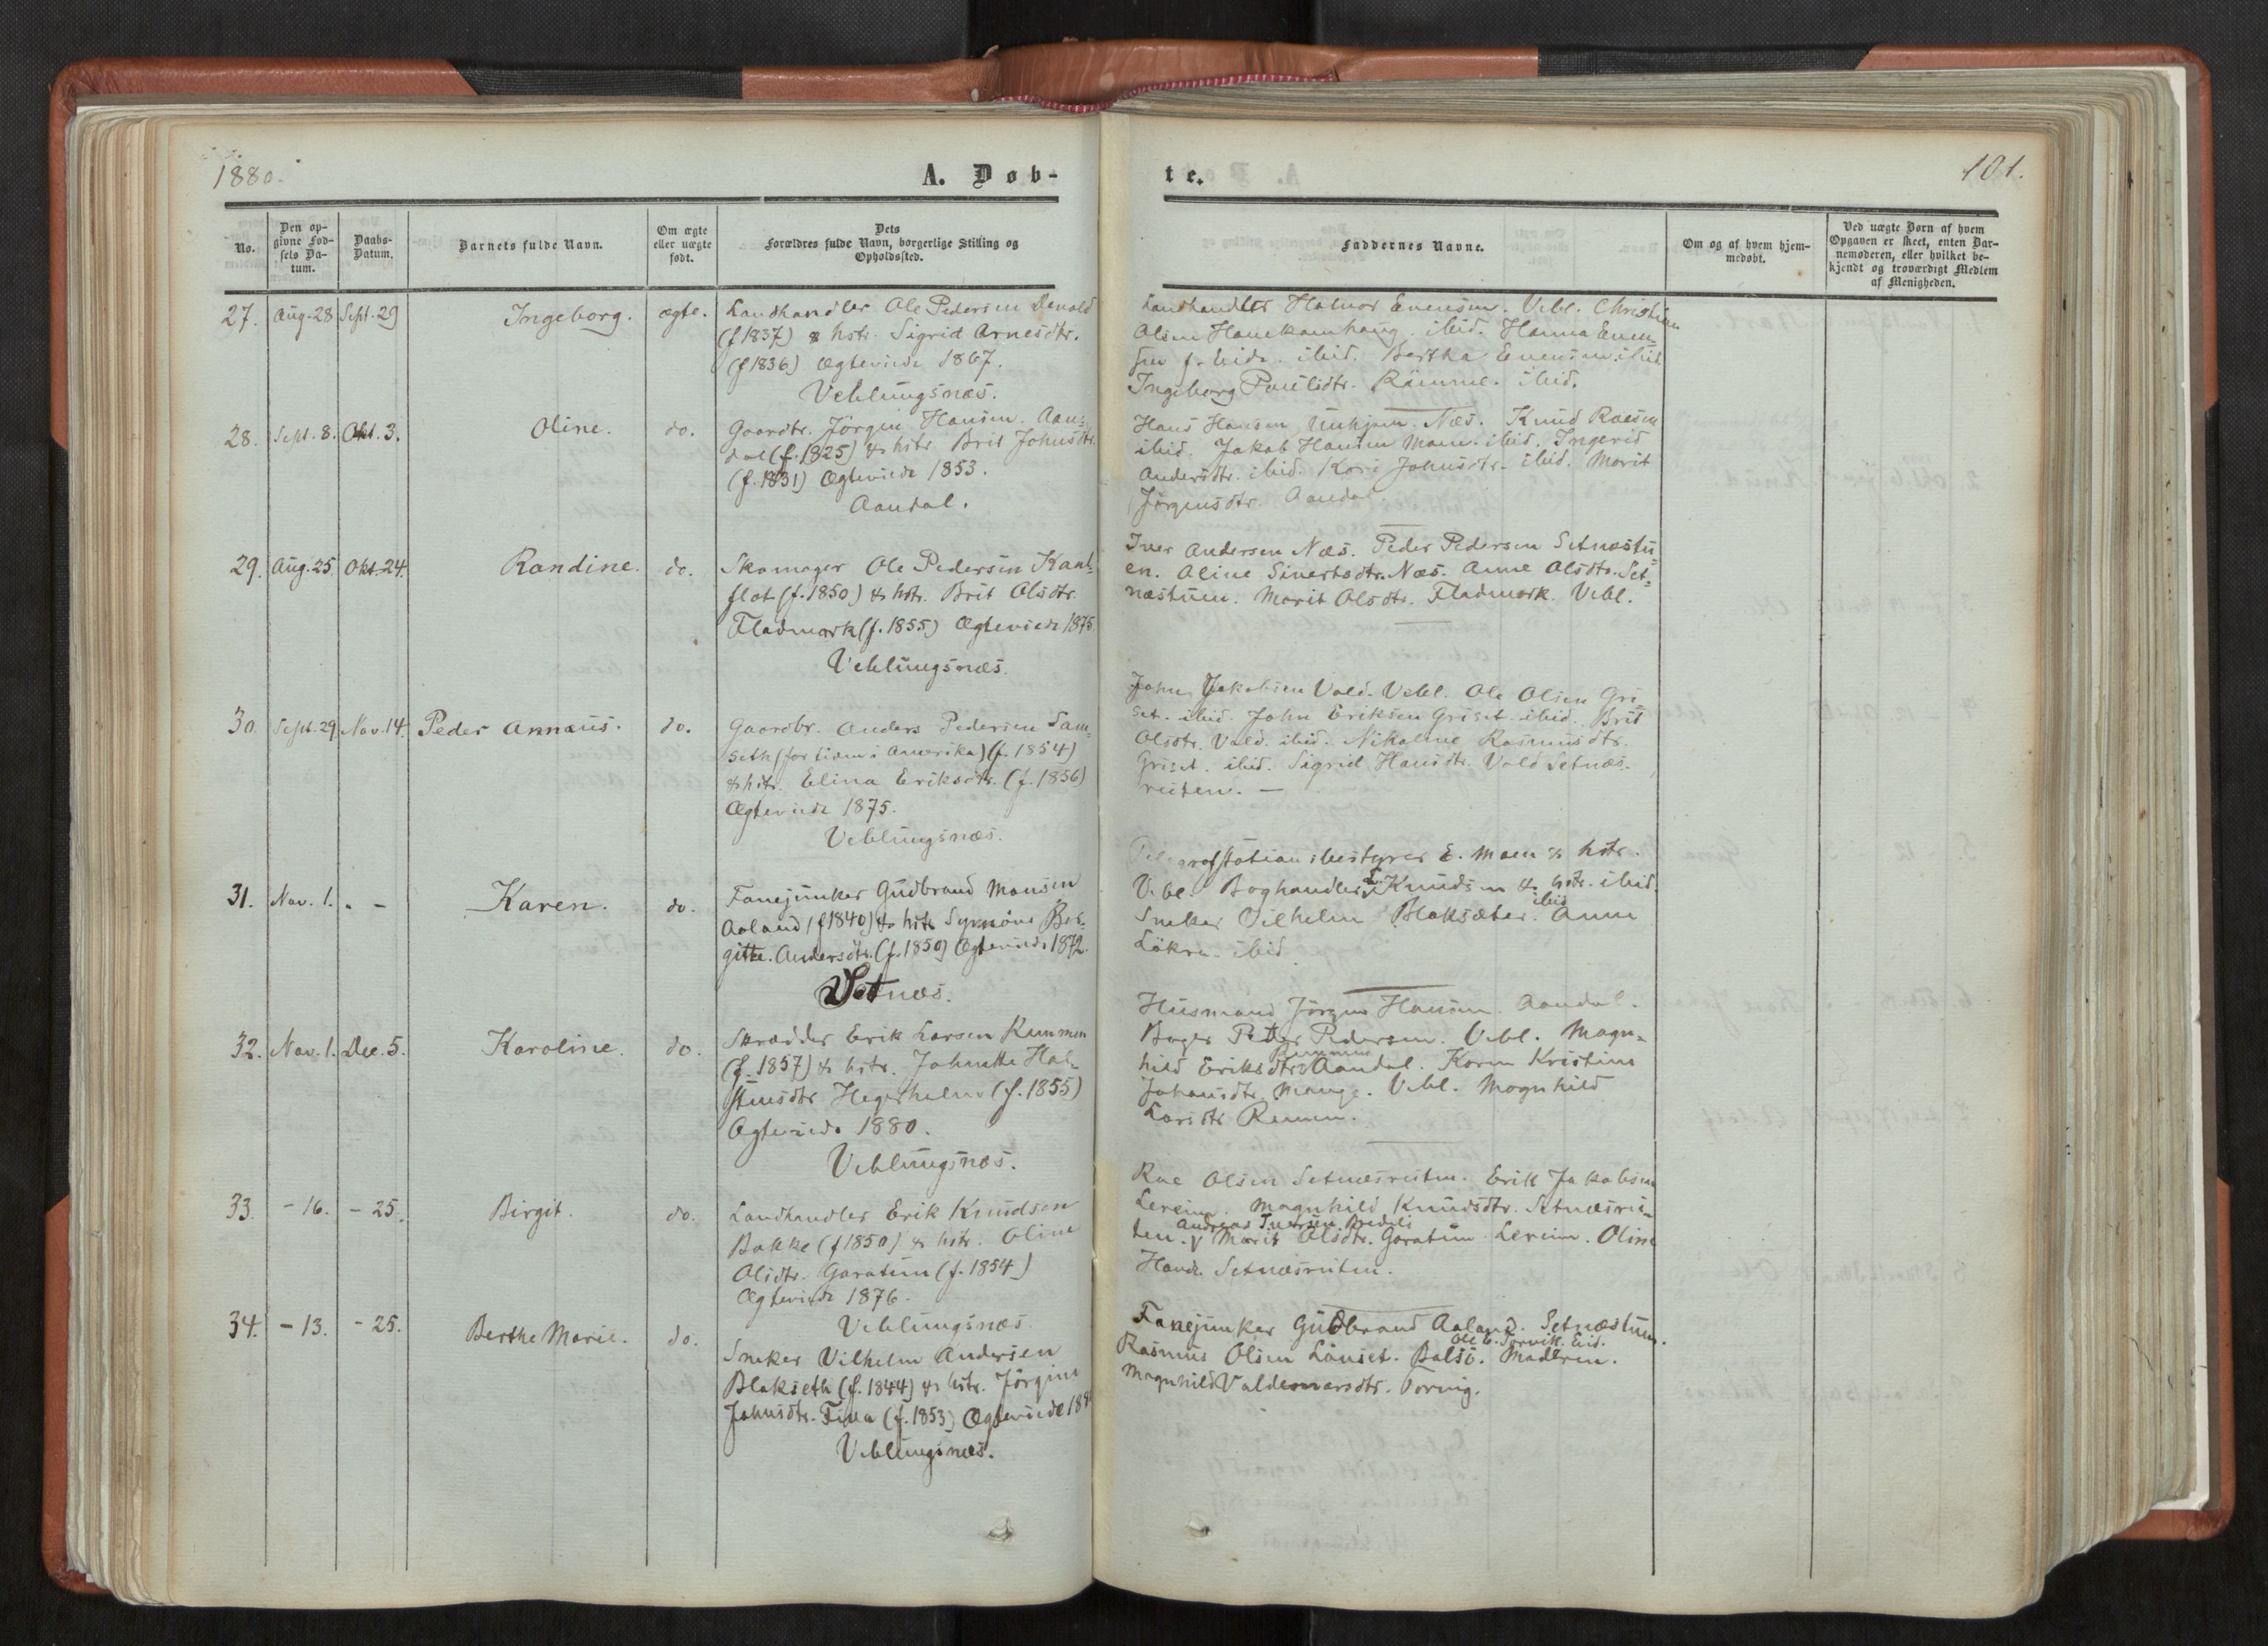 1880.
A. Døb-
te.
101.
No.
Den op-
givne Fød-
sels Da-
tum.
Daabs-
Datum.
Barnets fulde Navn.
Om ægte
eller uægte
født.
Dets
Forældres fulde Navn, borgerlige Stilling og
Opholdssted.
Faddernes Navne.
Om og af hvem hjem-
medøbt.
Ved uægte Børn af hvem
Opgaven er skeet, enten Bar-
nemoderen, eller hvilket be-
kjendt og troværdigt Medlem
af Menigheden.
27. Aug. 28 Sept. 29 Ingeborg. ægte. Landhandler Ole Pedersen Devold
(f 1837) & hstr. Sigrid Arnesdtr.
(f 1836) Ægteviede 1867.
Veblungsnæs.
Landhandler Halvor Evensen. Vebl. Christian
Olsen ibid. Hanna Even-
sen f. Eide. ibid. Bertha Evensen ibid.
Ingeborg Paulsdtr. ibid.
28. Sept. 8. Okt. 3. Oline. do. Gaardbr. Jörgen Hansen Aan-
dal (f. 1825) & hstr. Brit Johnsdtr.
(f. 1831) Ægteviede 1853.
Aandal.
Hans Hansen Unhjem. Næs. Knud Raesen
ibid. Jakob Hansen Moen. ibid. Ingerid
Andersdtr. ibid. Kari Johnsdtr. ibid. Marit
Jörgensdtr. Aandal.
29. Aug. 25. Okt. 24. Randine. do. Skomager Ole Pedersen
flot (f. 1850) & hstr. Brit Olsdtr.
Fladmark (f. 1855) Ægteviede 1875.
Veblungsnæs.
Iver Andersen Næs. Peder Pedersen Setnæstu-
en. Oline Sivertsdtr. Næs. Anne Olsdtr. Set-
næstuen. Marit Olsdtr. Fladmark. Vebl.
30. Sept. 29. Nov. 14. Peder Annæus. do. Gaardbr. Anders Pedersen Sam-
seth (for tiden i Amerika) (f. 1854)
& hstr. Elina Eriksdtr. (f. 1856)
Ægteviede 1875.
Veblungsnæs.
John Jakobsen Vold. Vebl. Ole Olsen Gri-
set. ibid. John Eriksen Griset. ibid. Brit
Olsdtr. Vold. ibid. Nikoline Rasmusdtr.
Griset. ibid. Sigrid Hansdtr. Vold Setnæs-
reiten. —
31. Nov. 1. . - Karen. do. Fanejunker Gudbrand Monsen
Aaland (f 1840) & hstr. Synnöve Bir-
gitte Andersdtr. (f. 1850) Ægteviede 1872.
Setnæs.
Telegrafstationsbestyrer E. Moen & hstr.
Vebl. Boghandler L. Knudsen & hstr. ibid.
Sneker Vilhelm Blaksæter. ibid Anne
Lökra. ibid.
32. Nov. 1. Dec. 5. Karoline. do. Skrædder Erik Larsen Remmen
(f. 1857) & hstr. Johnette Hal-
stensdtr Hegerholm (f. 1855)
Ægteviede 1880.
Veblungsnæs.
Husmand Jörgen Hansen. Aandal.
Bager Peder Pedersen. Vebl. Magn-
hild Eriksdtr. Remmen Aandal. Karen Kristine
Johansdtr. Mange. Vebl. Magnhild
Larsdtr Remmen.
33. - 16. - 25. Birgit. do. Landhandler Erik Knudsen
Bakke (f 1850) & hstr. Oline
Olsdtr. Garatun (f. 1854)
Ægteviede 1876.
Veblungsnæs.
Roe Olsen Setnæsreiten. Erik Jakobsen
Lereim. Magnhild Knudsdtr. Setnæsrei-
ten. Andreas Iversen Bredeli Marit Olsdtr. Garatun. Lereim. Oline
Setnæsreiten.
34. - 13. - 25. Berthe Marie. do. Sneker Vilhelm Andersen
Blakseth (f. 1844) & hstr. Jörgine
Johnsdtr. Fiva (f. 1853) Ægteviede
Veblungsnæs.
Fanejunker Gudbrand Aaland. Setnæstuen.
Rasmus Olsen Lönset. Bolsö. Ole O. Torvik. Eid. Moderen.
Magnhild Valdemarsdtr. Torvig.